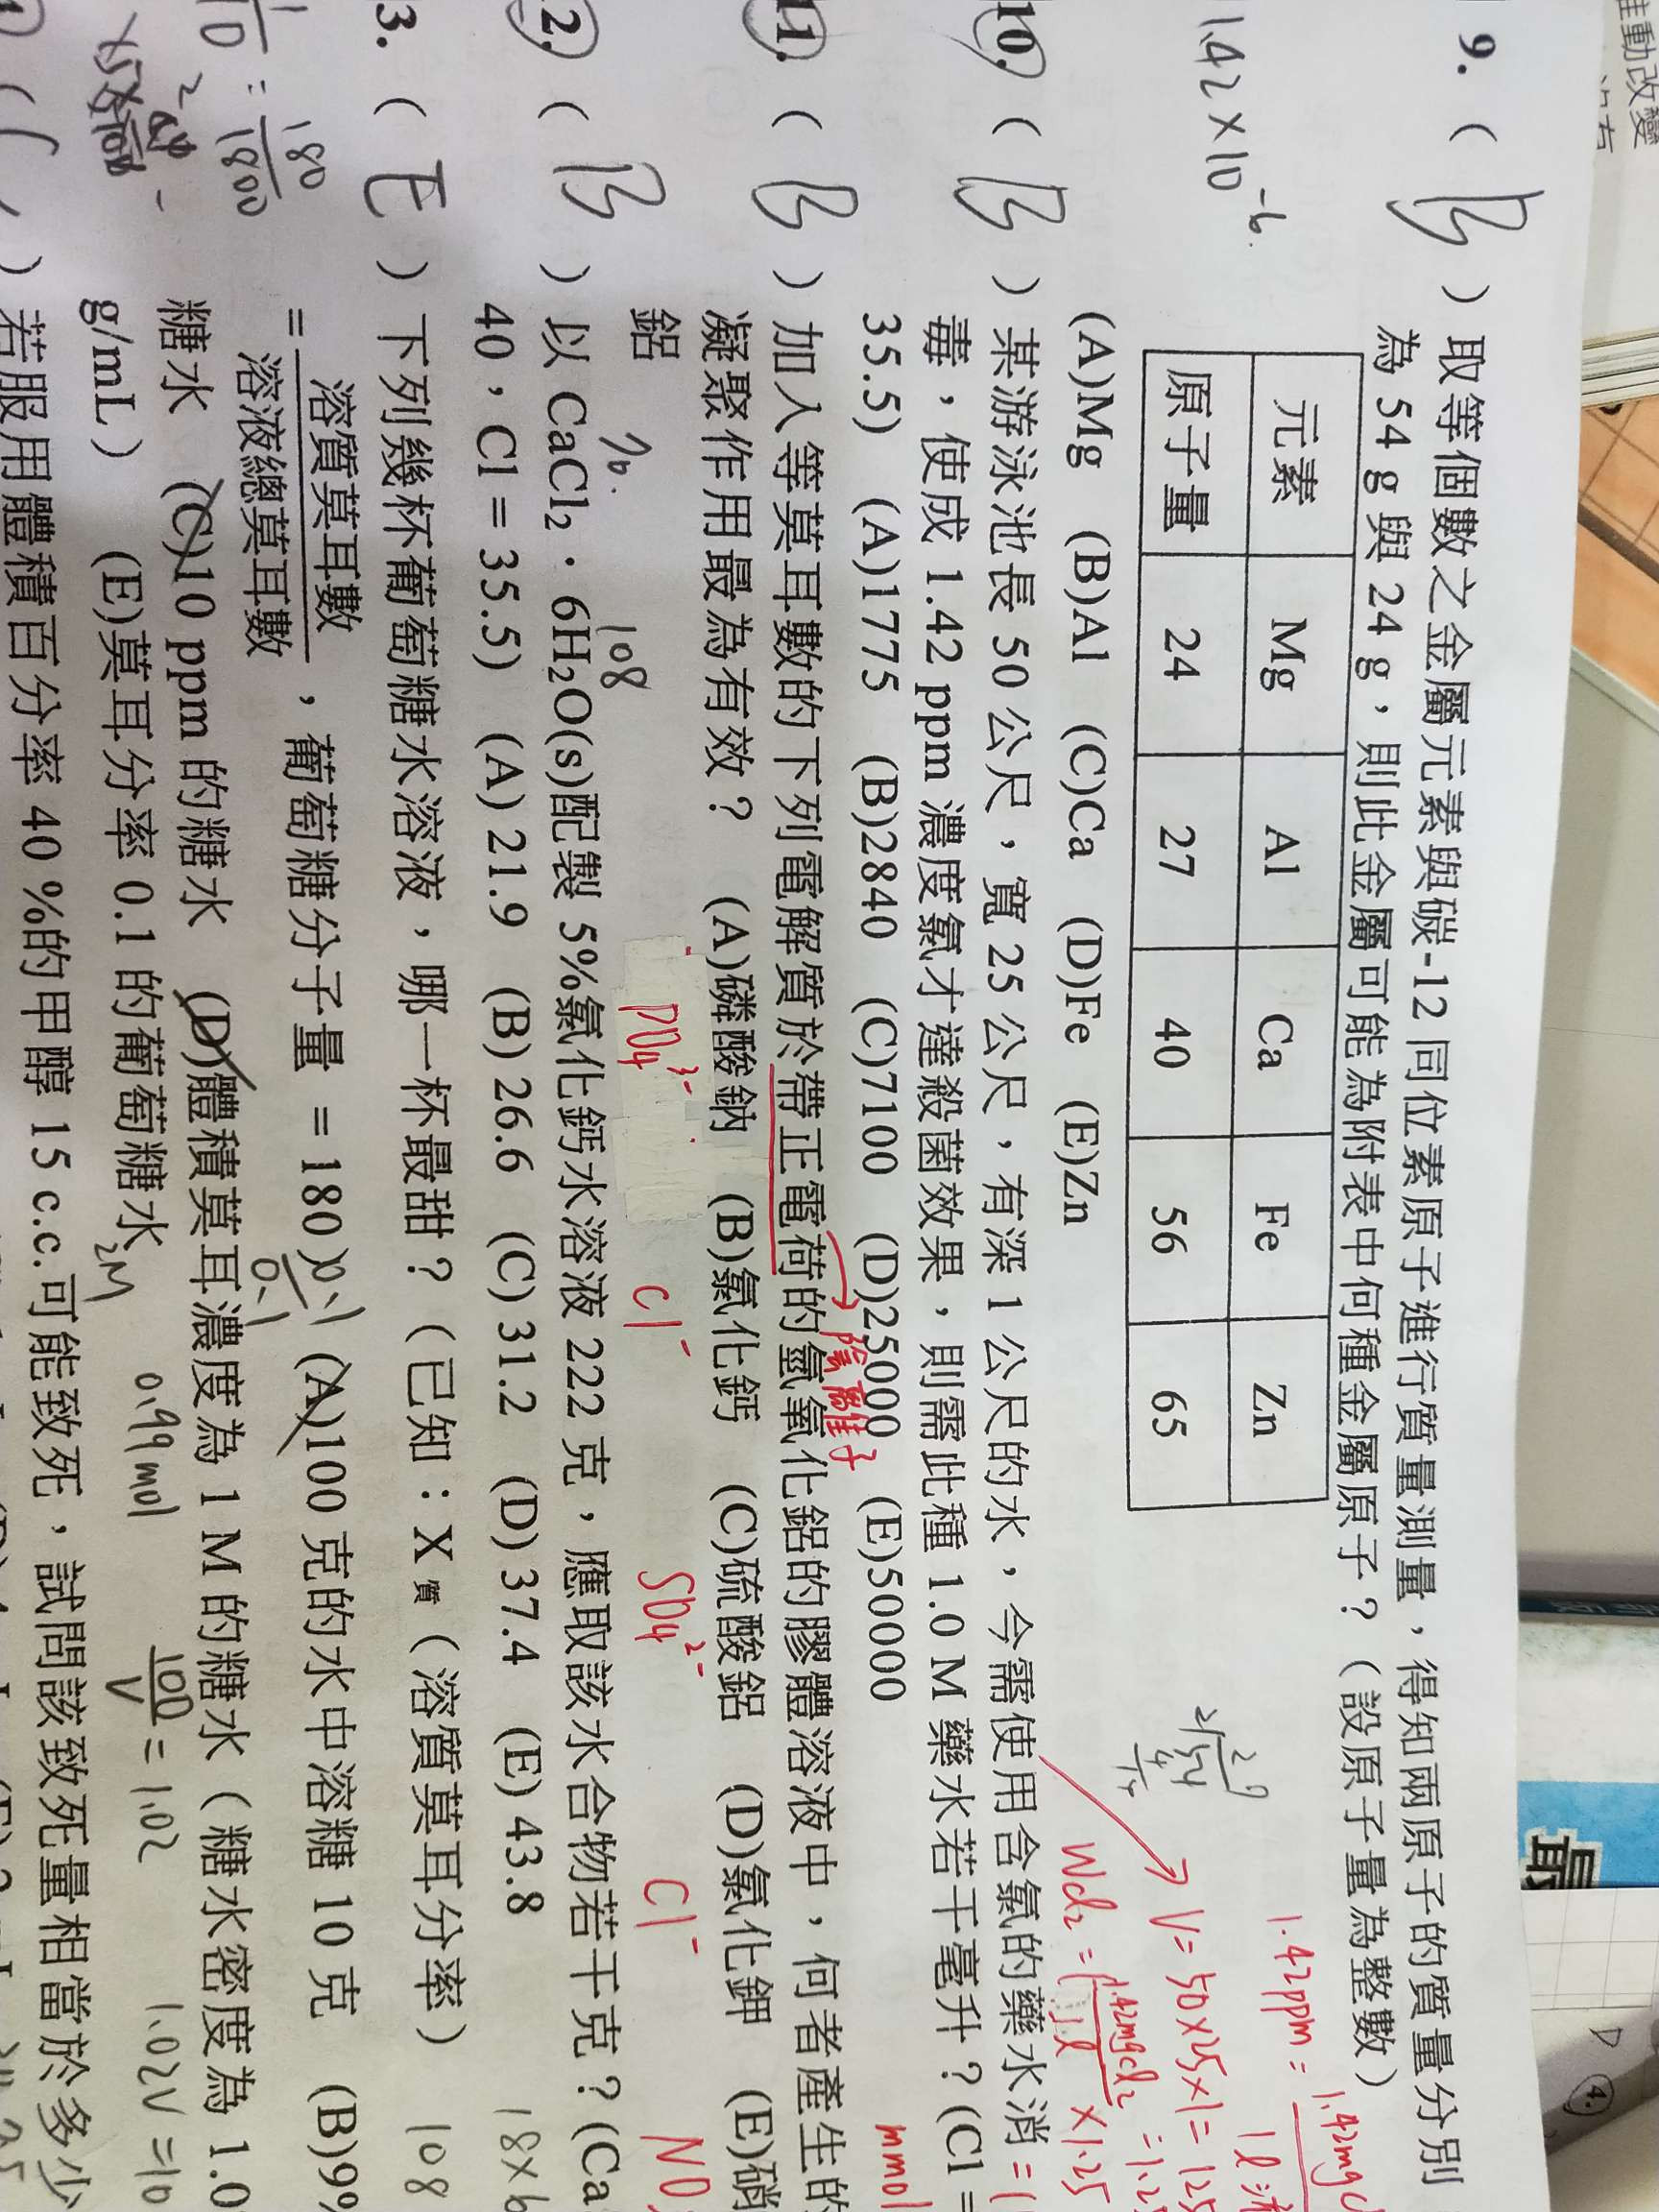 9. ( B ) 取等個數之金屬元素與碳-12同位素原子進行質量測量，得知兩原子的質量分別
為 54 g 與 24 g，則此金屬可能為附表中何種金屬原子？（設原子量為整數）
元素 Mg Al Ca Fe Zn
原子量 24 27 40 56 65
(A)Mg (B)Al (C)Ca (D)Fe (E)Zn
1.42×10⁻⁶
1.42ppm =
V = 50×25×1 = 125
10. ( B ) 某游泳池長 50 公尺，寬 25 公尺，有深 1 公尺的水，今需使用含氯的藥水消
毒，使成 1.42 ppm 濃度氯才達殺菌效果，則需此種 1.0 M 藥水若干毫升？(Cl =
35.5) (A)1775 (B)2840 (C)7100 (D)25000 (E)50000
陰離子
mmol
11. ( B ) 加入等莫耳數的下列電解質於帶正電荷的氫氧化鋁的膠體溶液中，何者產生的
凝聚作用最為有效？ (A)磷酸鈉 (B)氯化鈣 (C)硫酸鋁 (D)氯化鉀 (E)硝
鋁
PO₄³⁻ Cl⁻ SO₄²⁻ Cl⁻ NO
108
2. ( B ) 以 CaCl₂・6H₂O(s)配製 5%氯化鈣水溶液 222 克，應取該水合物若干克？(Ca
40，Cl = 35.5) (A) 21.9 (B) 26.6 (C) 31.2 (D) 37.4 (E) 43.8
18×6
108
3. ( E ) 下列幾杯葡萄糖水溶液，哪一杯最甜？（已知：X質（溶質莫耳分率）
= 溶質莫耳數
溶液總莫耳數
，葡萄糖分子量 = 180） (A)100 克的水中溶糖 10 克 (B)9%
糖水 (C)10 ppm 的糖水 (D)體積莫耳濃度為 1 M 的糖水（糖水密度為 1.0
g/mL） (E)莫耳分率 0.1 的葡萄糖水
2M
0.99mol
100/V = 1.02
1.02V = 10
180/1800
( ) 若服用體積百分率 40 %的甲醇 15 c.c.可能致死，試問該致死量相當於多少